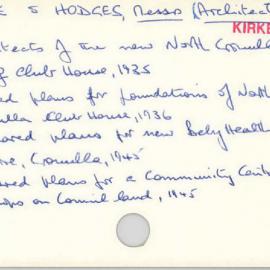 E & HODGES, Messrs (Architects
KIRKE
itects of the new North Cronulla
f Club House, 1935
ed plans for foundations of North
ulla Club House, 1936
ared plans for new Baby Health
re, Cronulla, 1945
ared plans for a Community Centre
ops on Council land, 1945